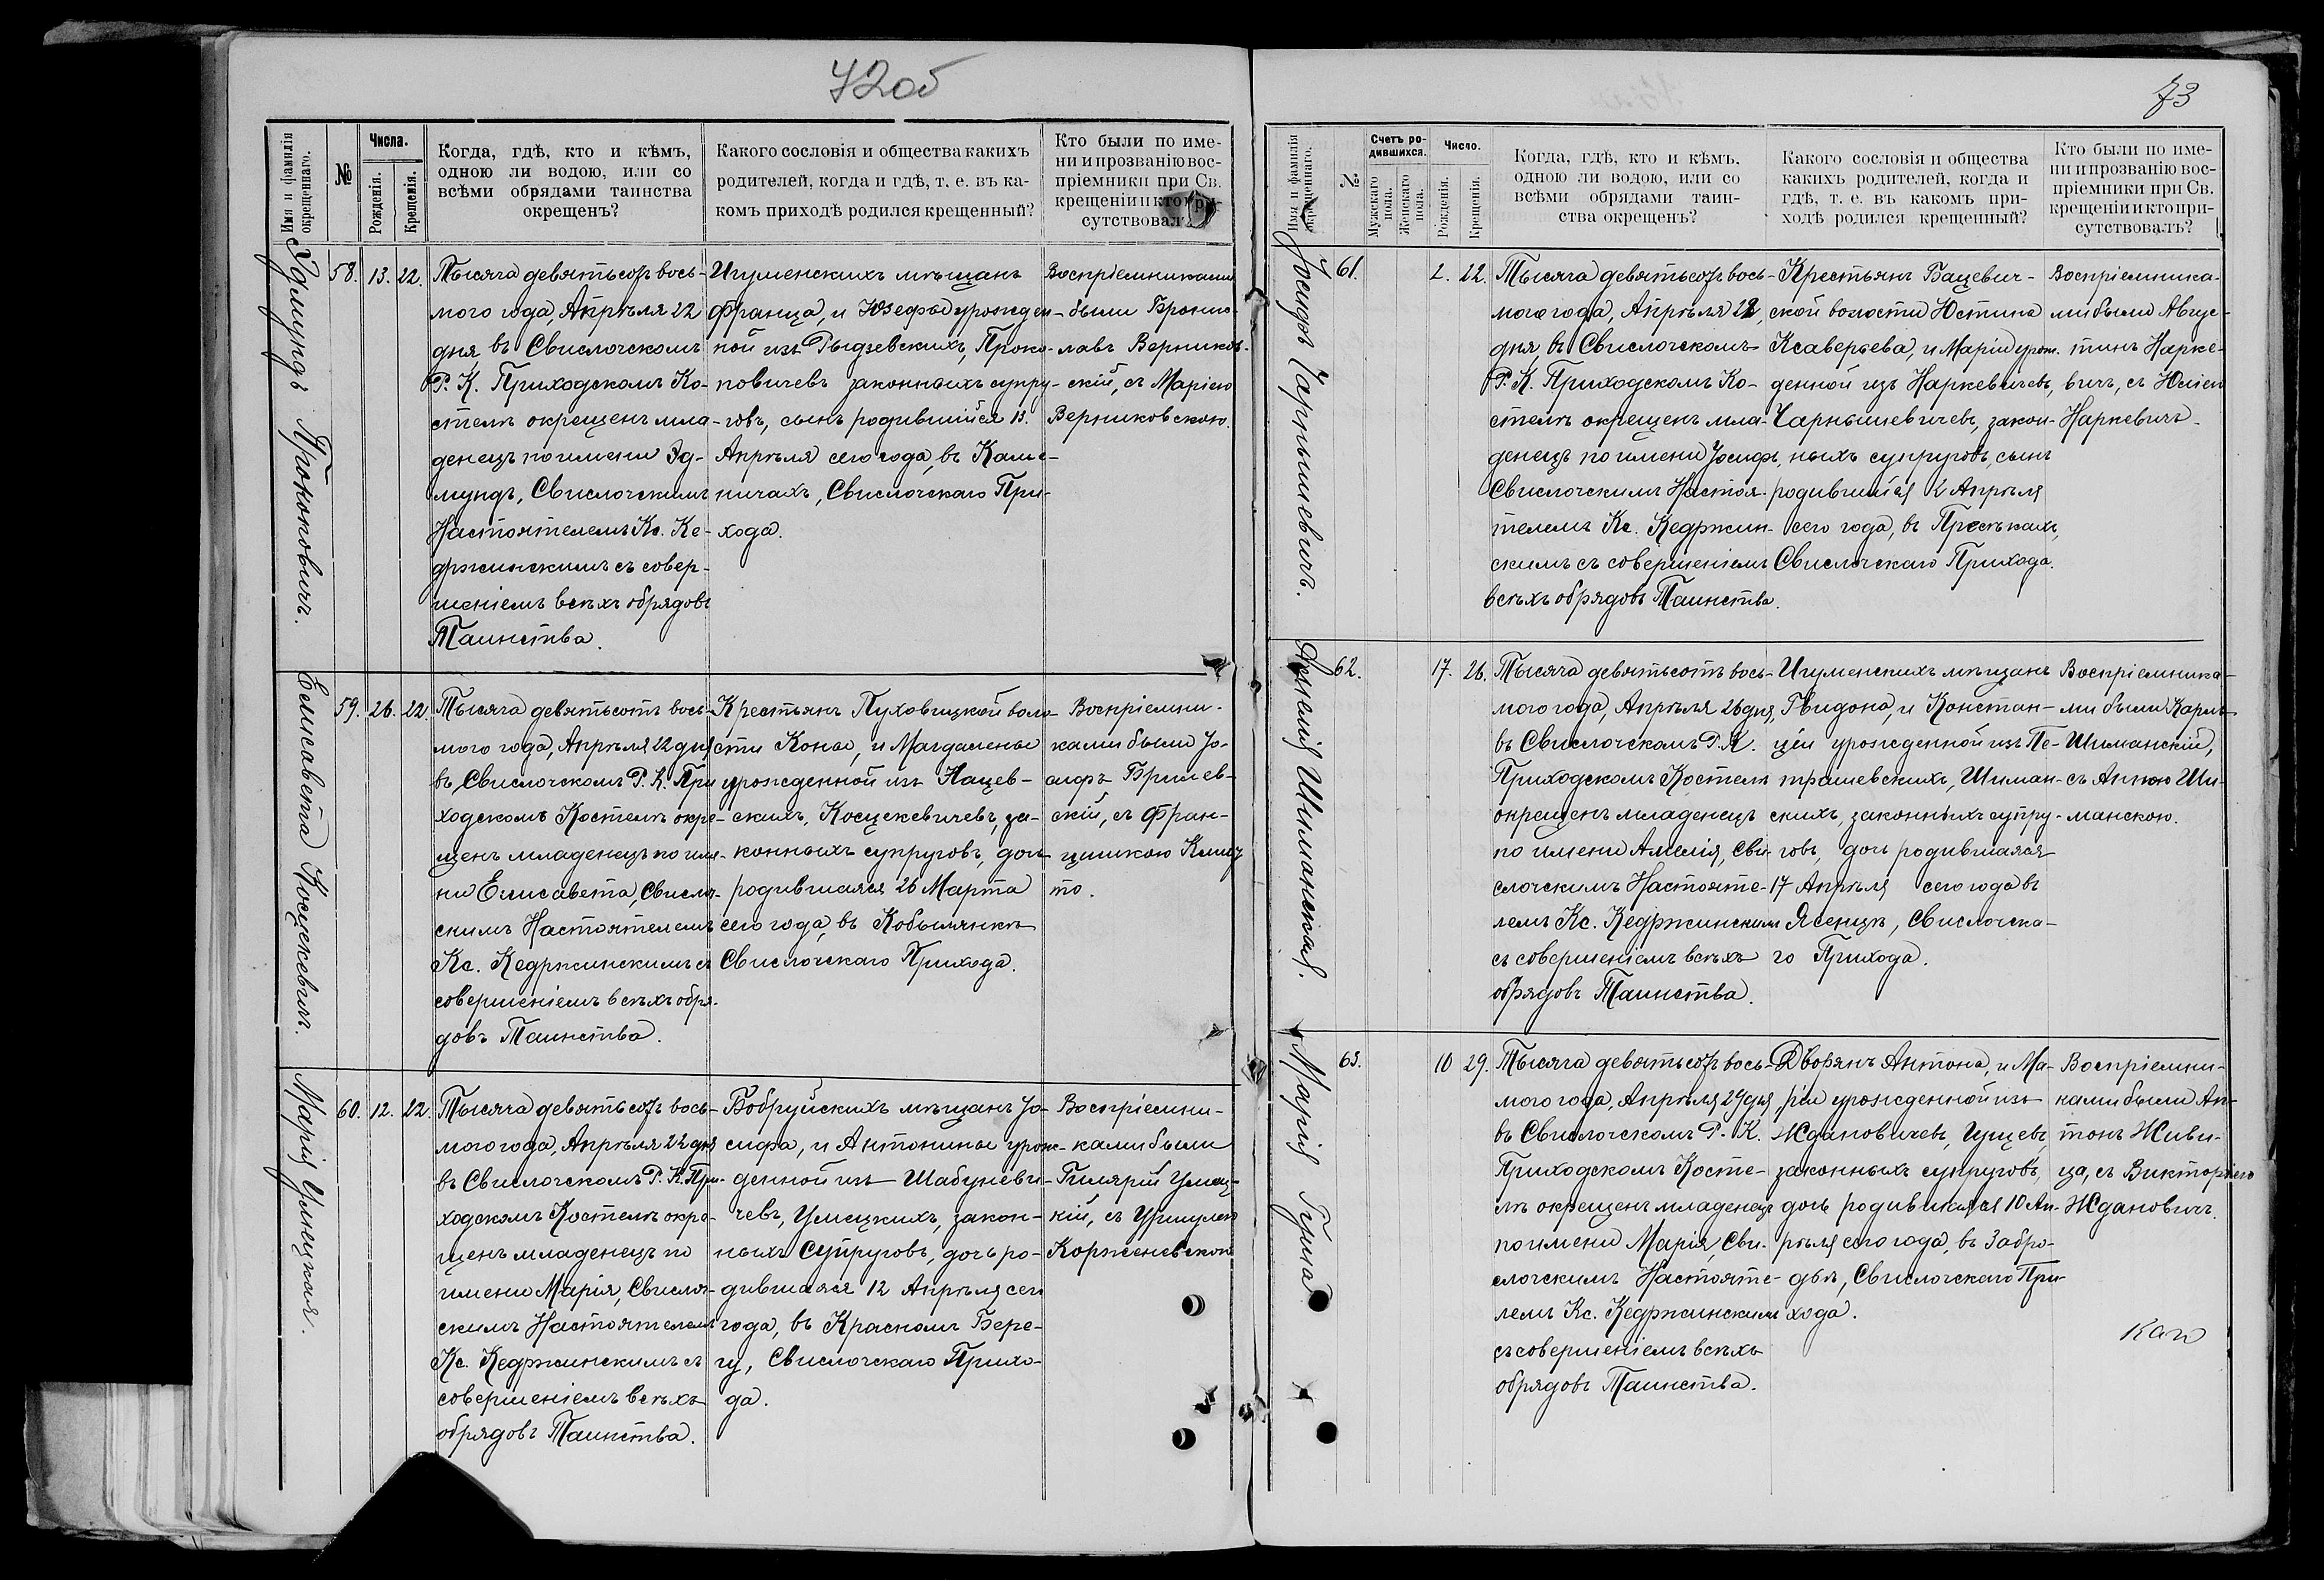 72об
Имя и фамилія окрещеннаго.
№
Числа.
Рожденія.
Крещенія.
Когда, гдѣ, кто и кѣмъ,
одною ли водою, или со
всѣми обрядами таинства
окрещенъ?
Какого сословія и общества какихъ
родителей, когда и гдѣ, т. е. въ ка-
комъ приходѣ родился крещенный?
Кто были по име-
ни и прозванію вос-
пріемники при Св.
крещеніи и кто при-
сутствовалъ?
Эдмундъ Прокоповичъ.
58. 13. 22.
Тысяча девятьсотъ вось-
мого года, Апрѣля 22
дня въ Свислочскомъ
Р. К. Приходскомъ Ко-
стелѣ окрещенъ мла-
денецъ по имени Эд-
мундъ, Свислочскимъ
Настоятелемъ Кс. Ке-
држинскимъ съ совер-
шеніемъ всѣхъ обрядовъ
Таинства.
Игуменскихъ мѣщанъ
Франца, и Юзефы урожден-
ной изъ Рыдзевскихъ, Проко-
повичевъ законныхъ супру-
говъ, сынъ родившійся 13.
Апрѣля сего года, въ
ничахъ, Свислочскаго При-
хода.
Воспріемниками
были Бронис-
лавъ Верников-
скій, съ Маріею
Верниковскою.
Елисавета Косцекевичъ.
59. 26. 22
Тысяча девятьсотъ вось-
мого года, Апрѣля 22 дня
въ Свислочскомъ Р. К. При
ходскомъ Костелѣ окре-
щенъ младенецъ по име-
ни Елисавета, Свислоч-
скимъ Настоятелемъ
Кс. Кедржинскимъ съ
совершеніемъ всѣхъ обря-
довъ Таинства.
Крестьянъ Пуховицкой воло-
сти Коны, и Магдалены
урожденной изъ Нацев-
скихъ, Косцекевичевъ, за-
конныхъ супруговъ, дочь
родившаяся 26 Марта
сего года, въ Кобылянкѣ
Свислочскаго Прихода.
Воспріемни-
ками были Іо-
сифъ
скій, съ Фран-
цишкою
то.
Марія Умецкая.
60. 12. 22.
Тысяча девятьсотъ вось-
мого года, Апрѣля 22 дня
въ Свислочскомъ Р. К. При-
ходскомъ Костелѣ окре-
щенъ младенецъ по
имени Марія, Свислоч-
скимъ Настоятелемъ
Кс. Кедржинскимъ съ
совершеніемъ всѣхъ
обрядовъ Таинства.
Бобруйскихъ мѣщанъ Іо-
сифа, и Антонины урож-
денной изъ Шабуневи-
чевъ, Умецкихъ, закон-
ныхъ супруговъ, дочь ро-
дившаяся 12 Апрѣля сего
года, въ Красномъ Бере-
гу, Свислочскаго Прихо-
да.
Воспріемни-
ками были
Гилярій Умец-
кій, съ Уршулею
Корженевскою
73
Имя и фамилія окрещеннаго.
№
Счетъ ро-
дившихся.
Мужскаго пола.
Женскаго пола.
Число.
Рожденія.
Крещенія.
Когда, гдѣ, кто и кѣмъ,
одною ли водою, или со
всѣми обрядами таин-
ства окрещенъ?
Какого сословія и общества
какихъ родителей, когда и
гдѣ, т. е. въ какомъ при-
ходѣ родился крещенный?
Кто были по име-
ни и прозванію вос-
пріемники при Св.
крещеніи и кто при-
сутствовалъ?
Іосифъ Чарнышевичъ.
61. 2. 22.
Тысяча девятьсотъ вось-
мого года, Апрѣля 22,
дня, въ Свислочскомъ
Р. К. Приходскомъ Ко-
стелѣ окрещенъ мла-
денецъ по имени Іосифъ,
Свислочскимъ Настоя-
телемъ Кс. Кедржин-
скимъ съ совершеніемъ
всѣхъ обрядовъ Таинства.
Крестьянъ Бацевич-
ской волости Юстина
Ксаверьева, и Маріи урож-
денной изъ Наркевичевъ,
Чарнышевичевъ, закон-
ныхъ супруговъ, сынъ
родившійся 2 Апрѣля
сего года, въ
Свислочскаго Прихода.
Воспріемника-
ми были Авгус-
тинъ Нарке-
вичъ, съ Юліею
Наркевичъ.
Амелія Шиманская.
62. 17. 26.
Тысяча девятьсотъ вось-
мого года, Апрѣля 26 дня,
въ Свислочскомъ Р. К.
Приходскомъ Костелѣ
окрещенъ младенецъ
по имени Амелія, Сви-
слочскимъ Настояте-
лемъ Кс. Кедржинскимъ
съ совершеніемъ всѣхъ
обрядовъ Таинства.
Игуменскихъ мѣщанъ
Гвидона, и Констан-
ціи урожденной изъ Пе-
трашевскихъ, Шиман-
скихъ, законныхъ супру-
говъ, дочь родившаяся
17 Апрѣля сего года въ
Ясенцѣ, Свислочска-
го Прихода.
Воспріемника-
ми были Карлъ
Шиманскій,
съ Анною Ши-
манскою.
Марія Гуща
63. 10 29.
Тысяча девятьсотъ вось-
мого года, Апрѣля 29 дня,
въ Свислочскомъ Р. К.
Приходскомъ Косте-
лѣ окрещенъ младенецъ
по имени Марія, Сви-
слочскимъ Настояте-
лемъ Кс. Кедржинскимъ
съ совершеніемъ всѣхъ
обрядовъ Таинства.
Дворянъ Антона, и Ма-
ріи урожденной изъ
Ждановичевъ,
законныхъ супруговъ,
дочь родившаяся 10 Ап-
рѣля сего года, въ Забро-
дьѣ, Свислочскаго При-
хода.
Воспріемни-
ками были Ан-
тонъ Живи-
ца, съ Викторіею
Ждановичъ.